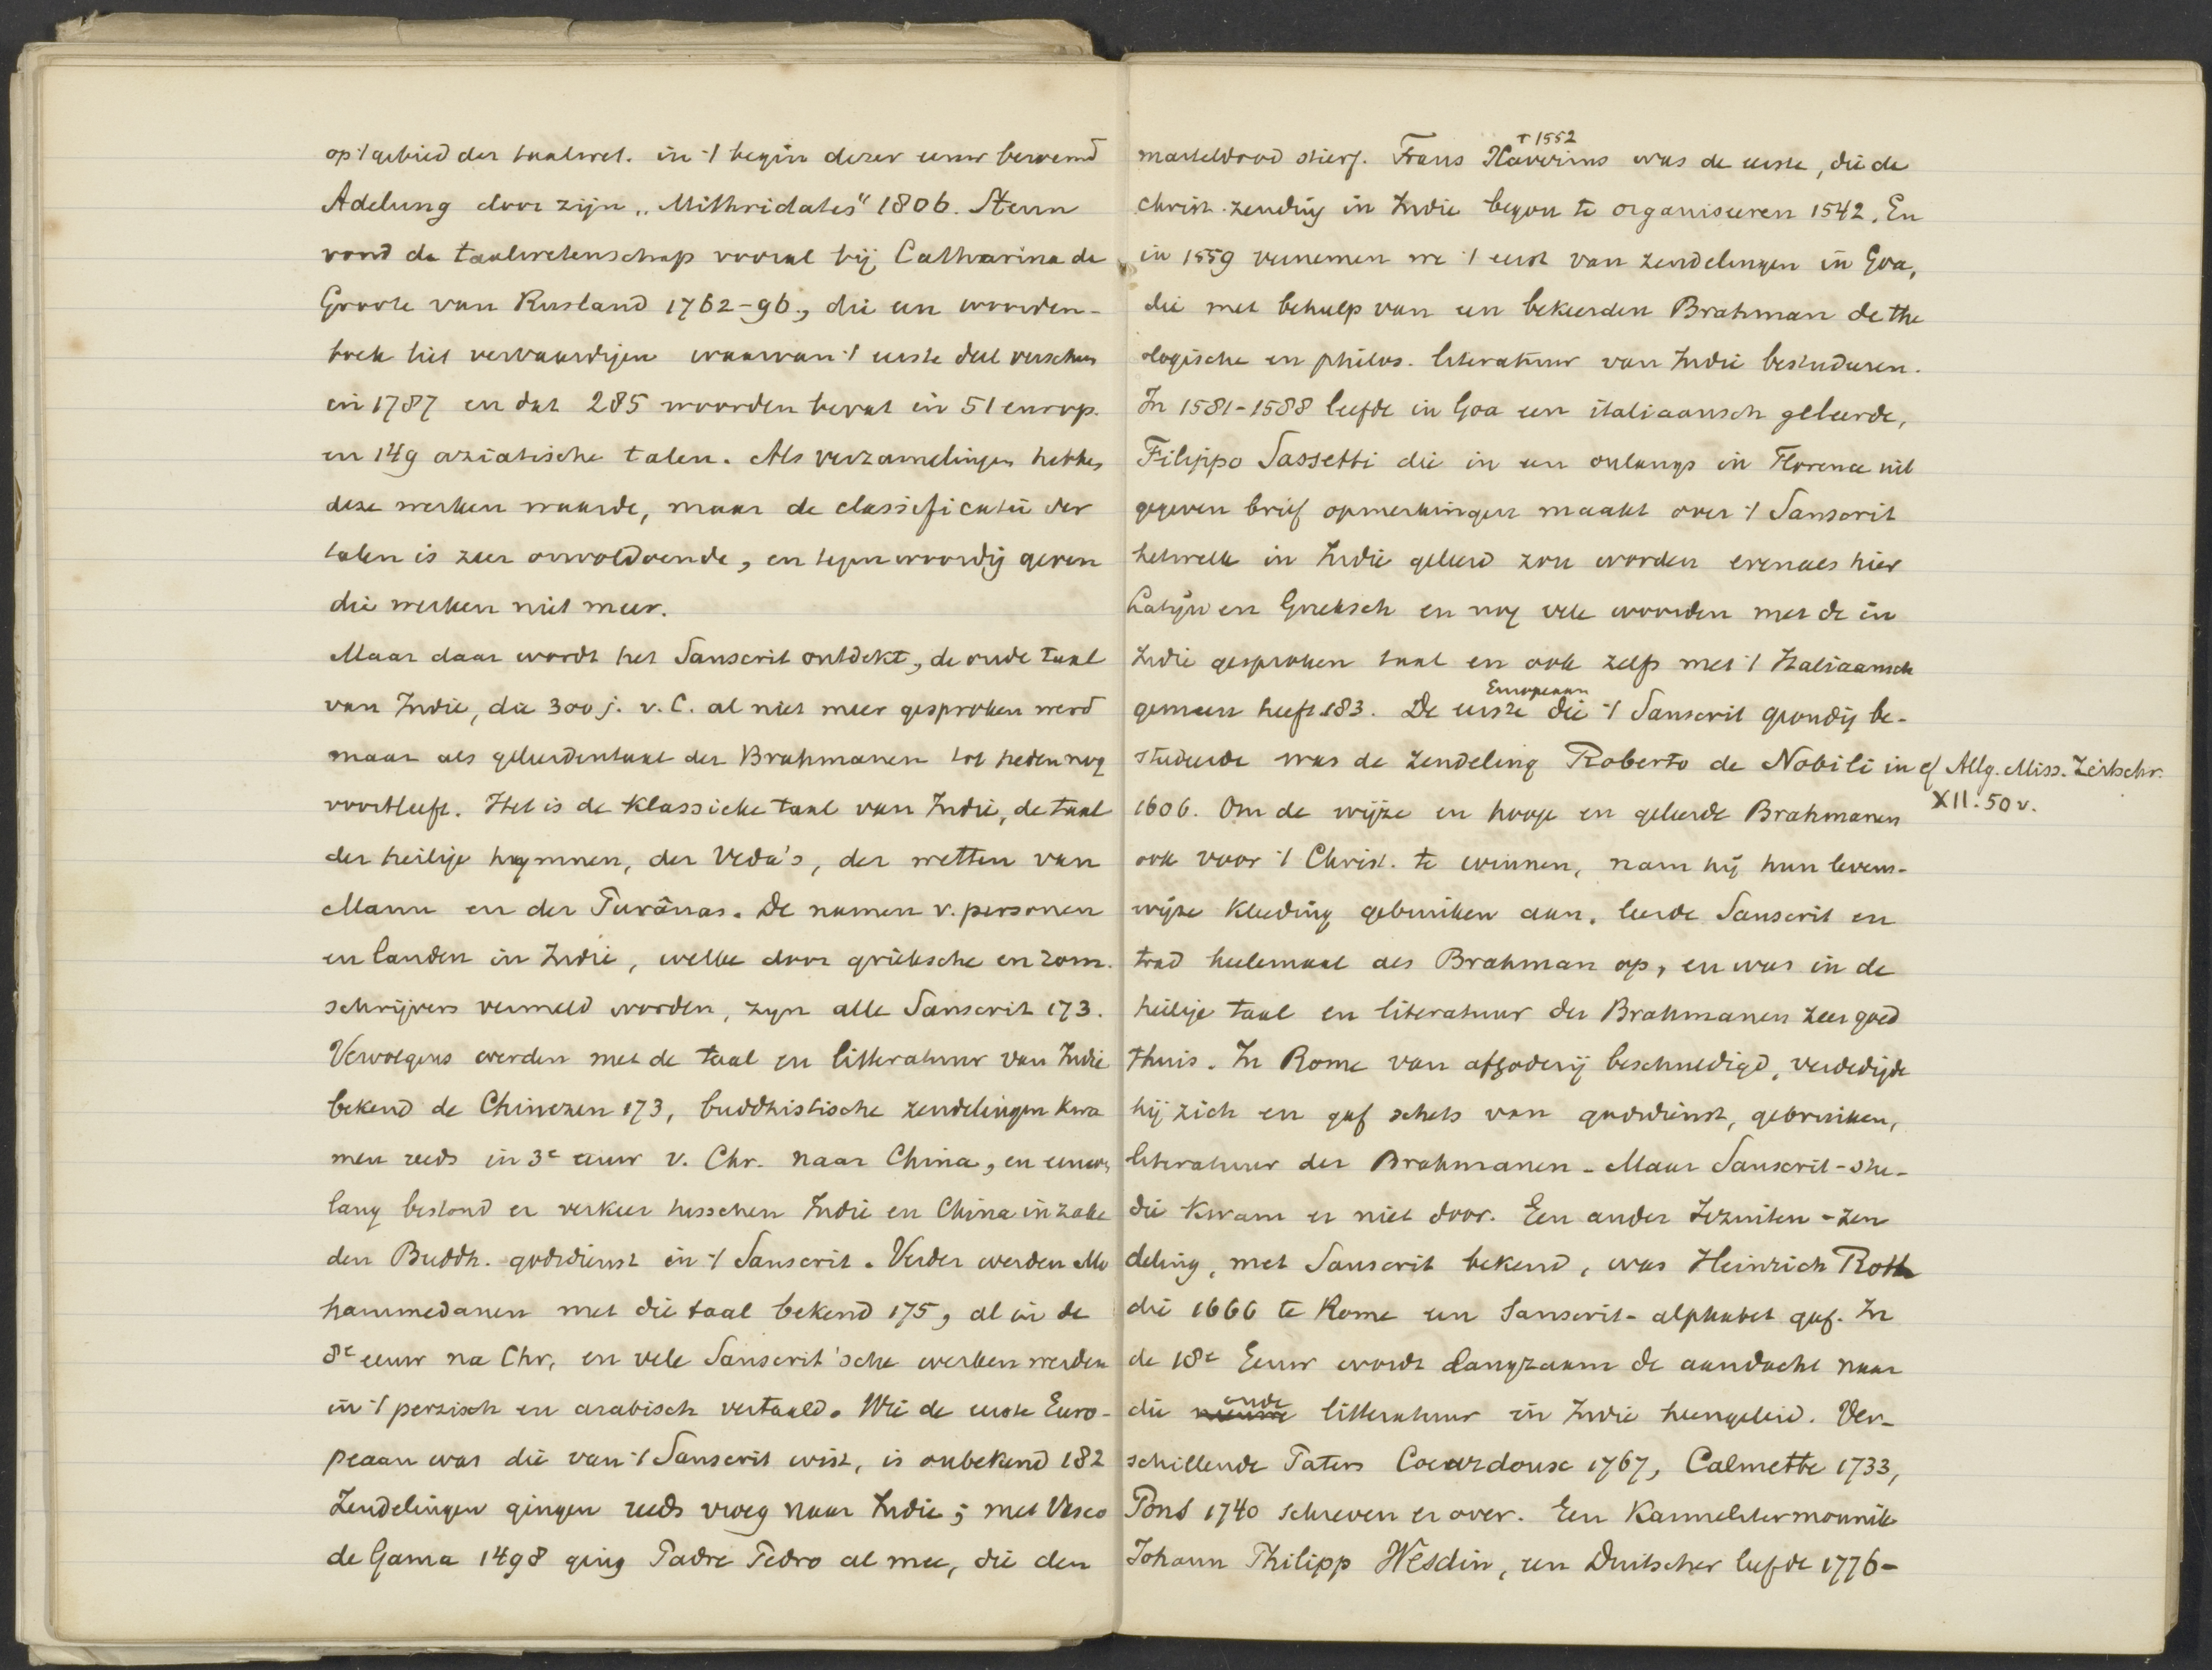 op 't gebied der taalwet. in 't begin dezer eeuw beroemd
Adelung door zijn „Mithridates" 1806. Steun
vond de taalwetenschap vooral bij Catharina de
Groote van Rusland 1762-96, die een woorden-
boek liet vervaardigen waarvan 't eerste deel verscheen
in 1787 en dat 285 woorden bevat in 51 europ.
en 149 aziatische talen. Als verzamelingen hebben
deze werken waarde, maar de classificatie der
talen is zeer onvoldoende, en tegenwoordig geven
die werken niet meer.
Maar daar wordt het Sanscrit ontdekt, de oude taal
van Indie, die 300 j. v. C. al niet meer gesproken werd
maar als geleerdentaal der Brahmanen tot heden nog
voortleeft. Het is de klassieke taal van Indie, de taal
der heilige hymnen, der Veda's, der wetten van
Manu en der Purânas. De namen v. personen
en landen in Indie, welke door grieksche en rom.
schrijvers vermeld worden, zyn alle Sanscrit 173.
Vervolgens werden met de taal en litteratuur van Indie
bekend de Chinezen 173, buddhistische zendelingen kwa
men reeds in 3e eeuw v. Chr. naar China, en eeuwen
lang bestond er verkeer tusschen Indie en China inzake
den Buddh. godsdienst en 't Sanscrit. Verder werden Mo
hammedanen met die taal bekend 175, al in de
8e eeuw na Chr, en vele Sanscrit'sche werken werden
in 't perzisch en arabisch vertaald. Wie de eerste Euro-
peaan was die van 't Sanscrit wist, is onbekend 182
Zendelingen gingen reeds vroeg naar Indie; met Vasco
de Gama 1498 ging Padre Pedro al mee, die den
marteldood stierf. Frans Xaverius † 1552 was de eerste, die de
christ. zending in Indie begon te organiseeren 1542. En
in 1559 vernemen we 't eerst van zendelingen in Goa,
die met behulp van een bekeerden Brahman de the
ologische en philos. literatuur van Indie bestudeeren.
In 1581-1588 leefde in Goa een italiaansch geleerde,
Filippo Sassetti die in een onlangs in Florence uit
gegeven brief opmerkingen maakt over 't Sanscrit
hetwelk in Indie geleerd zou worden evenals hier
Latijn en Grieksch en nog vele woorden met de in
Indie gesproken taal en ook zelfs met 't Italiaansch
gemeen heeft 183. De eerste Europeaan die 't Sanscrit grondig be-
studeerde was de zendeling Roberto de Nobili in
cf Allg. Miss. Zeitschr.
XII. 50 v.
1606. Om de wijze en hooge en geleerde Brahmanen
ook voor 't Christ. te winnen, nam hij hun levens-
wijze kleeding gebruiken aan, leerde Sanscrit en
trad heelemaal als Brahman op, en was in de
heilige taal en literatuur der Brahmanen zeer goed
thuis. In Rome van afgoderij beschuldigd, verdedigde
hij zich en gaf schets van godsdienst, gebruiken,
literatuur der Brahmanen. Maar Sanscrit-stu-
die kwam er niet door. Een ander Jezuiten-zen
deling, met Sanscrit bekend, was Heinrich Roth
die 1666 te Rome een Sanscrit-alphabet gaf. In
de 18e Eeuw wordt langzaam de aandacht naar
die oude litteratuur in Indie heengeleid. Ver-
schillende Paters Coeurdoux 1767, Calmette 1733,
Pons 1740 schreven er over. Een Karmelitermonnik
Johann Philipp Wesdin, een Duitscher leefde 1776-